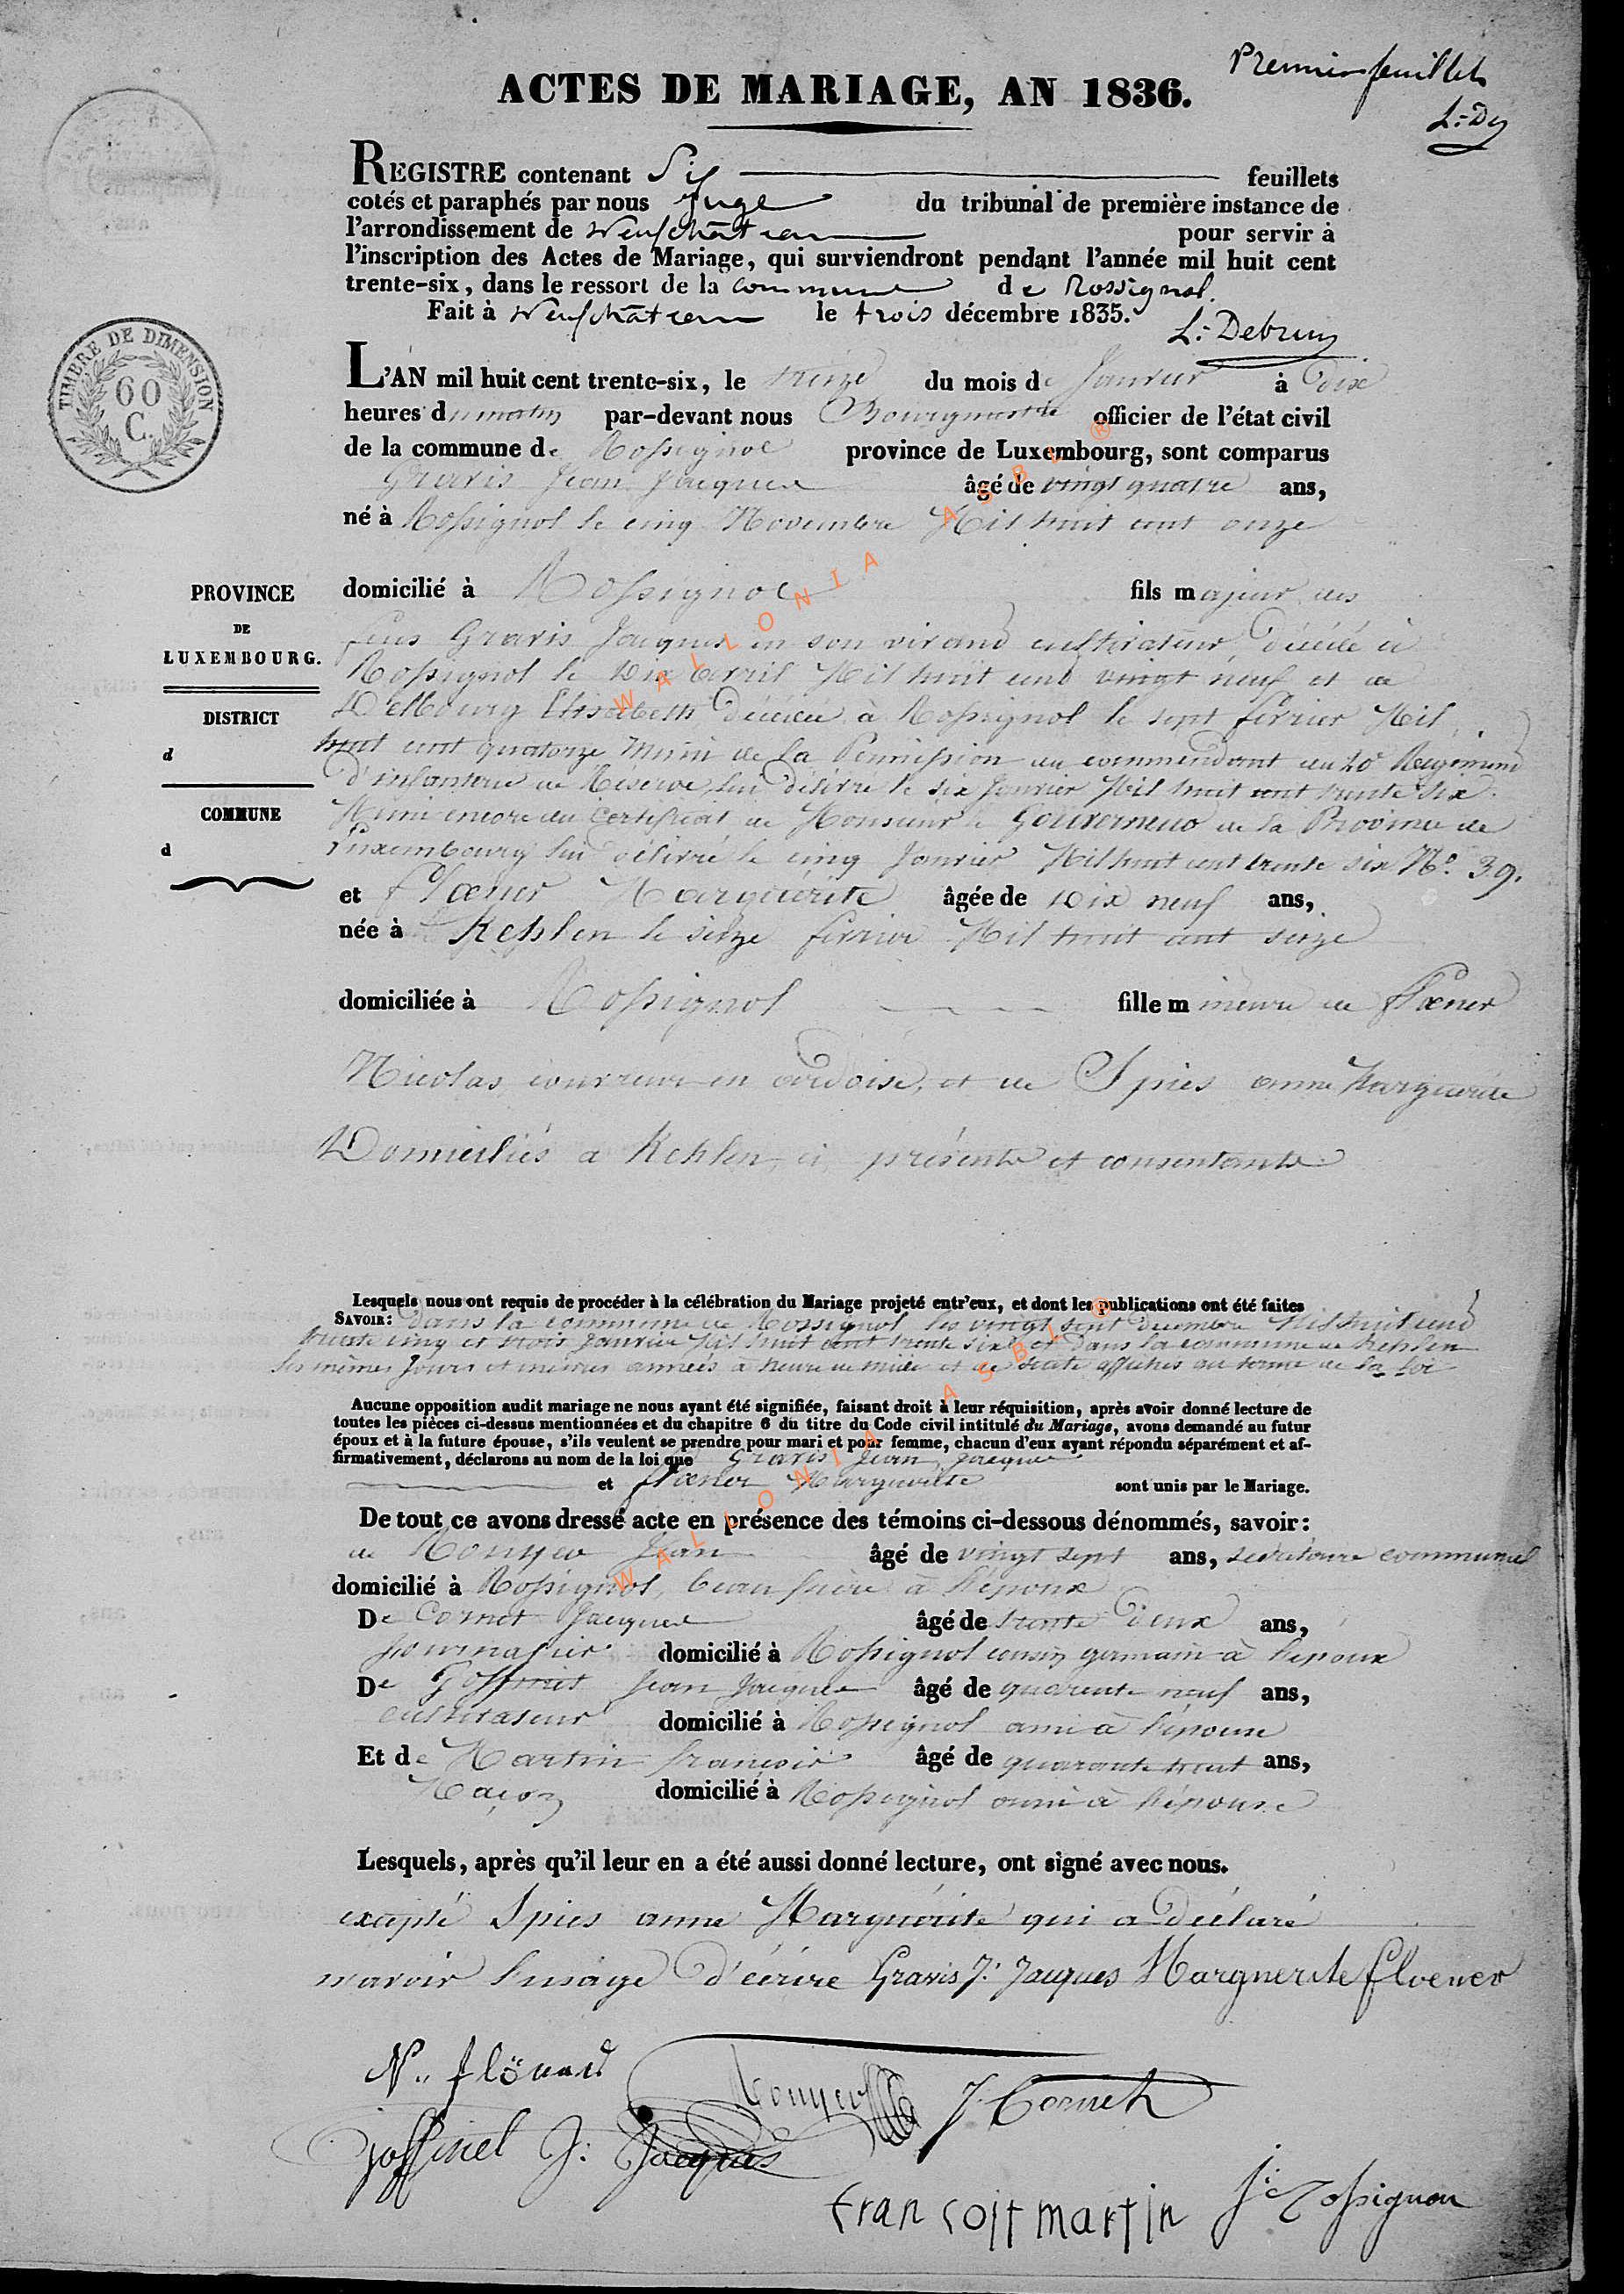 Premier feuillet
L: Dy
ACTES DE MARIAGE, AN 1836.
REGISTRE contenant Six feuillets
cotés et paraphés par nous Juge du tribunal de première instance de
l'arrondissement de Neufchâteau pour servir à
l'inscription des Actes de Mariage, qui surviendront pendant l'année mil huit cent
trente-six, dans le ressort de la commune de Rossignol.
Fait à Neufchâteau le trois décembre 1835.
L: Debrun
TIMBRE DE DIMENSION
60
C.
L'AN mil huit cent trente-six, le treize du mois de Janvier à dix
heures du matin par-devant nous Bourgmestre officier de l'état civil
de la commune de Rossignol province de Luxembourg, sont comparus
Gravis Jean Jacques âgé de vingt quatre ans,
né à Rossignol le cinq Novembre Mil huit cent onze
PROVINCE
DE
LUXEMBOURG.
DISTRICT
d
COMMUNE
d
domicilié à Rossignol fils majeur des
feus Gravis Jacques en son vivant cultivateur, décédé à
Rossignol le Dix avril Mil huit cent vingt neuf et de
Delbourg Elisabeth Décédée à Rossignol le sept février Mil
huit cent quatorze Muni de la Permission du commendant du 20e Regiment
D'infanterie de Reserve, lui délivré le six Janvier Mil huit cent trente six.
Muni encore du Certificat de Monsieur le Gouverneur de la Province de
Luxembourg lui délivré le cinq Janvier Mil huit cent trente six No. 39.
et flœner Marguérite âgée de Dix neuf ans,
née à Kehlen le seize février Mil huit cent seize
domiciliée à Rossignol fille mineure de flœner
Nicolas, couvreur en ardoise, et de Spies anne Marguérite
Domiciliés a Kehlen, ci présents et consentants
Lesquels nous ont requis de procéder à la célébration du Mariage projeté entr'eux, et dont les publications ont été faites
SAVOIR: dans la commune de Rossignol les vingt sept décembre Mil huit cent
trente cinq et trois Janvier Mil huit cent trente six et Dans la commune de Kehlen
les mêmes Jours et mêmes années à heure de midi et de suite affichés au terme de la loi
Aucune opposition audit mariage ne nous ayant été signifiée, faisant droit à leur réquisition, après avoir donné lecture de
toutes les pièces ci-dessus mentionnées et du chapitre 6 du titre du Code civil intitulé du Mariage, avons demandé au futur
époux et à la future épouse, s'ils veulent se prendre pour mari et pour femme, chacun d'eux ayant répondu séparément et af-
firmativement, déclarons au nom de la loi que Gravis Jean Jacques
et flœner Marguerite sont unis par le Mariage.
De tout ce avons dressé acte en présence des témoins ci-dessous dénommés, savoir:
de Rouyer Jean âgé de vingt sept ans, secrétaire communal
domicilié à Rossignol, beau frère à l'époux
De Cornet Jacques âgé de trente deux ans,
Journalier domicilié à Rossignol cousin germain à l'époux
De Goffinet Jean Jacques âgé de quarente neuf ans,
cultivateur domicilié à Rossignol ami à l'épouse
Et de Martin françois âgé de quarante huit ans,
Maçon domicilié à Rossignol ami à l'épouse
Lesquels, après qu'il leur en a été aussi donné lecture, ont signé avec nous.
excepté Spies anne Marguérite qui a déclaré
n'avoir l'usage d'écrire Gravis J: Jacques Marguerite floener
N.. flöner
Rouyer J. Cornet
Goffinet J: Jacques
francois martin J: Rossignon
WALLONIA ASBL ®
WALLONIA ASBL ®